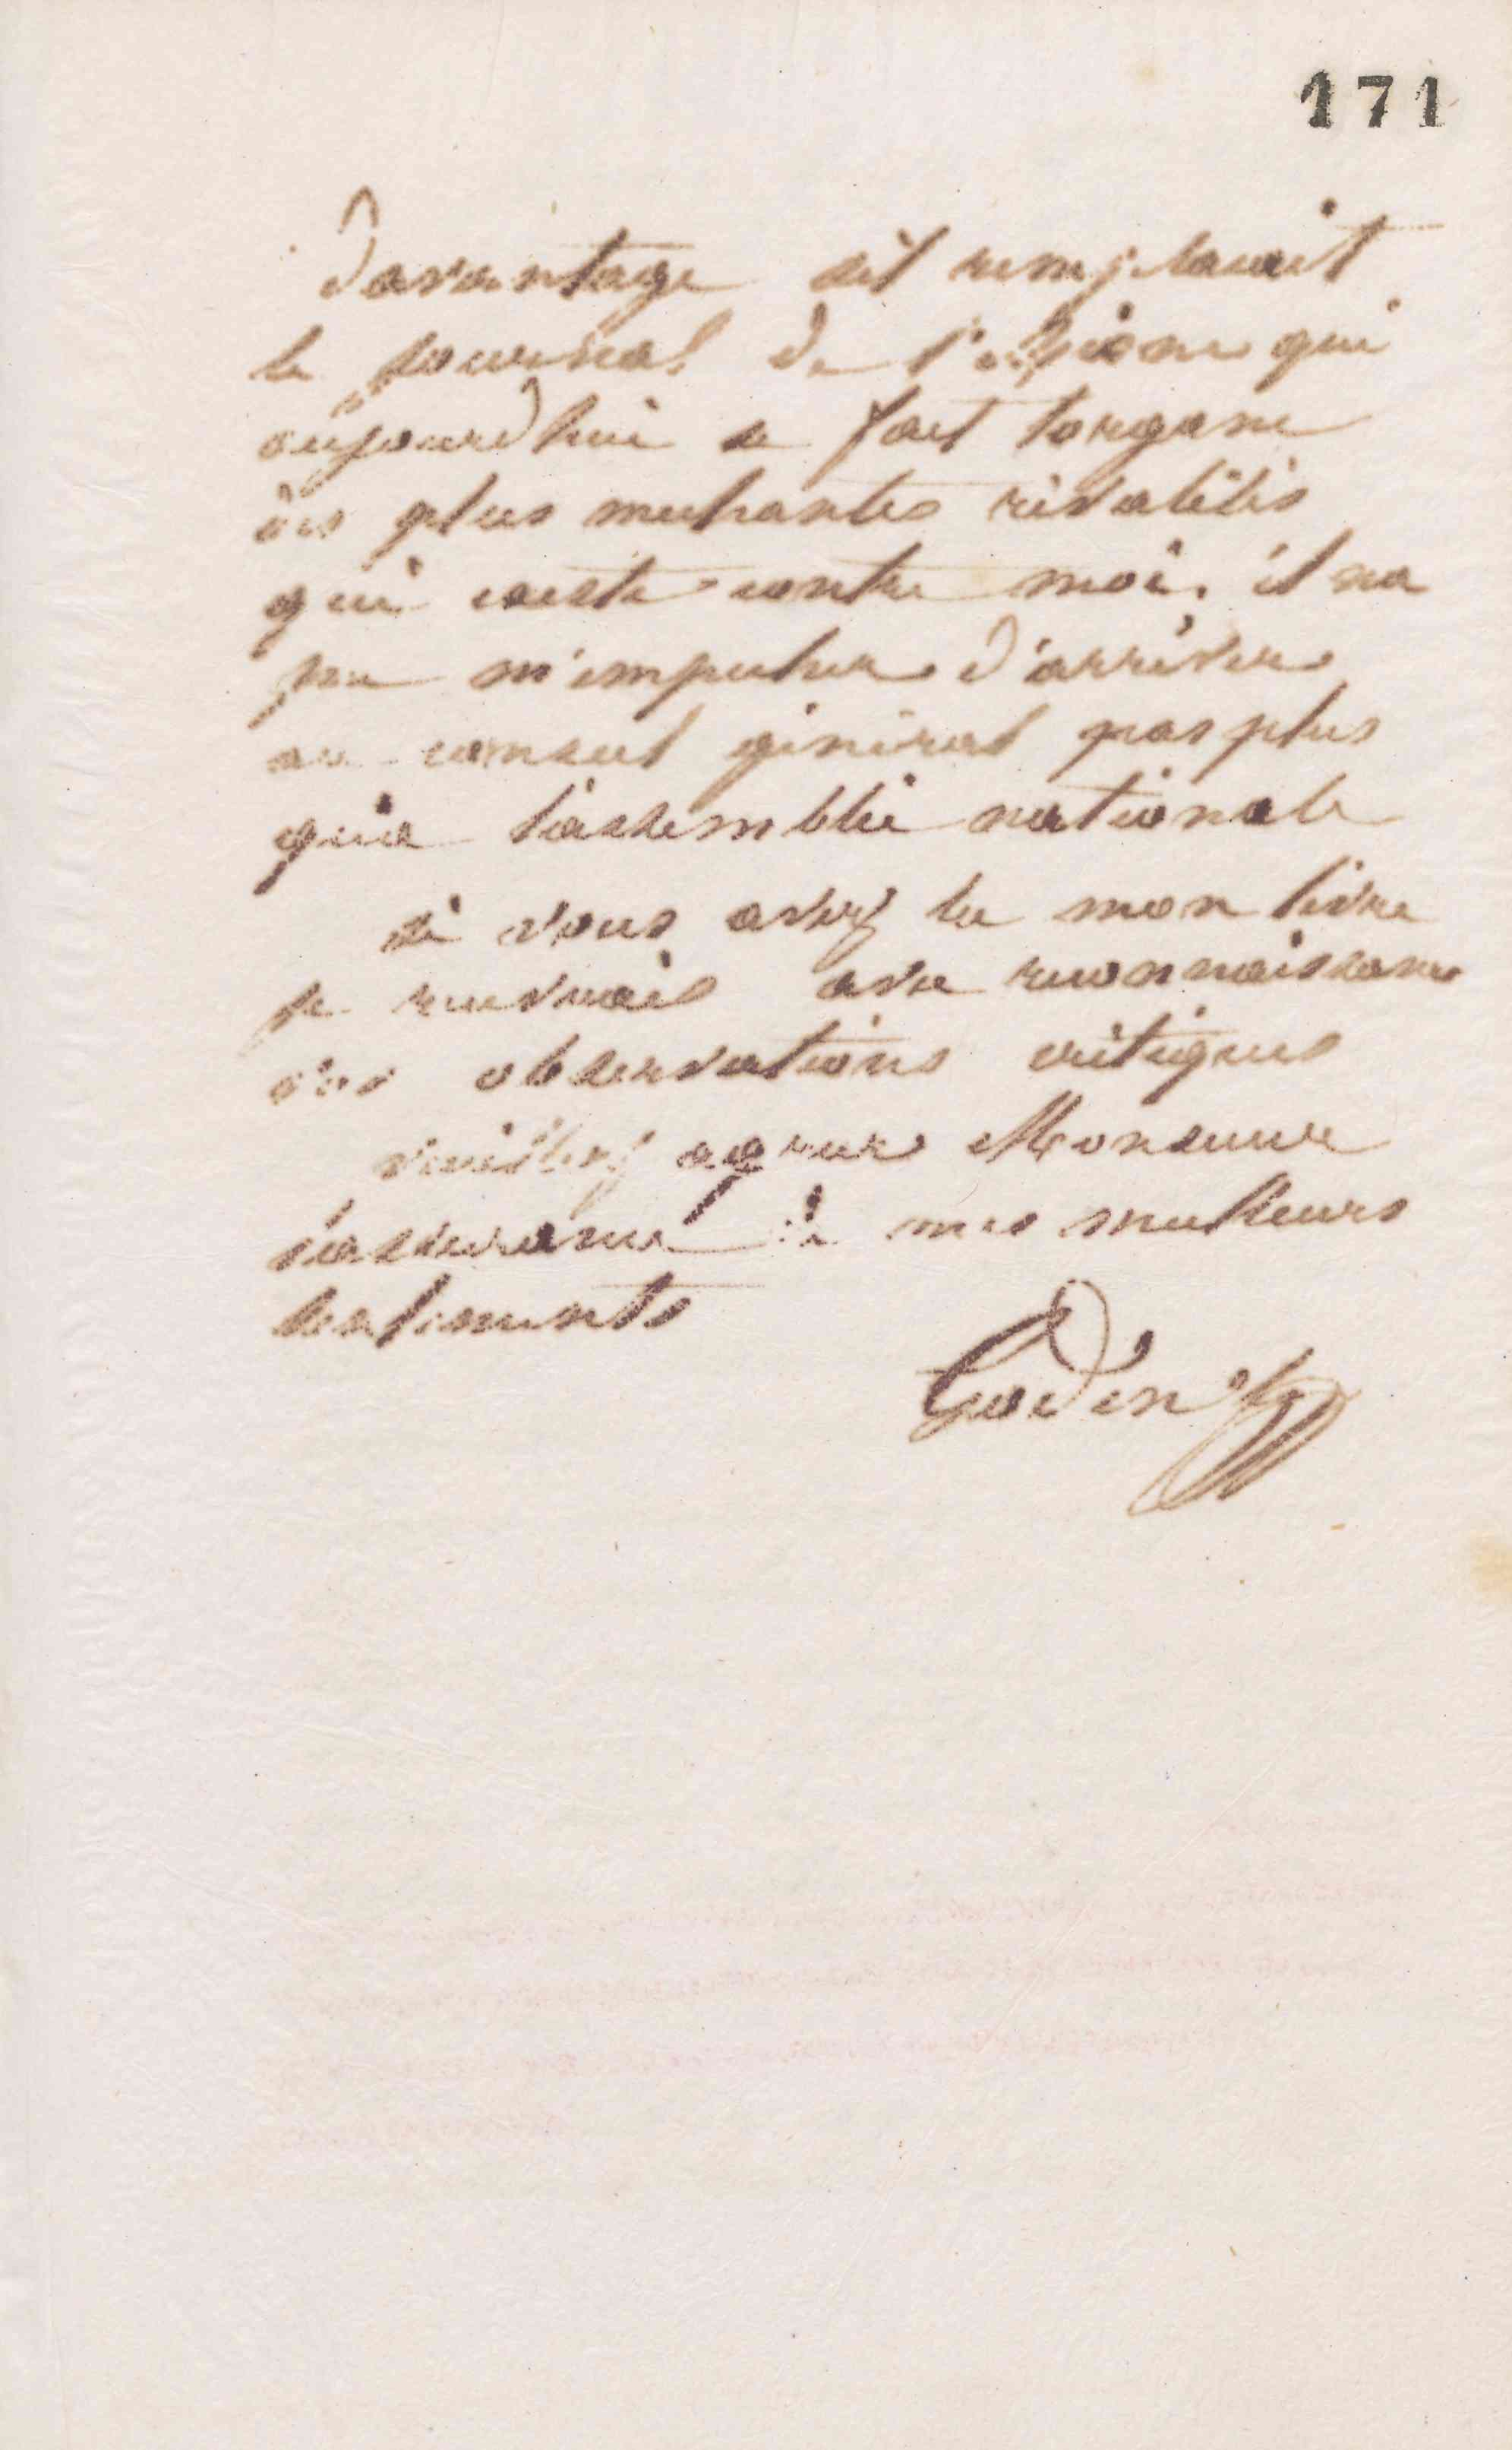 171
davantage s'il remplacait
le journal de l'aisne qui
aujourd'hui se fait l'organe
des plus mechantes rivalités
qui existe contre moi. il na
pu m'empecher d'arriver
au conseil général pas plus
qu'a l'assemblée nationale
si vous avez lu mon livre
je recevrais avec reconnaissance
vos observations critiques
veuillez agreer Monsieur
l'assurance de mes meilleurs
sentiments
Godin